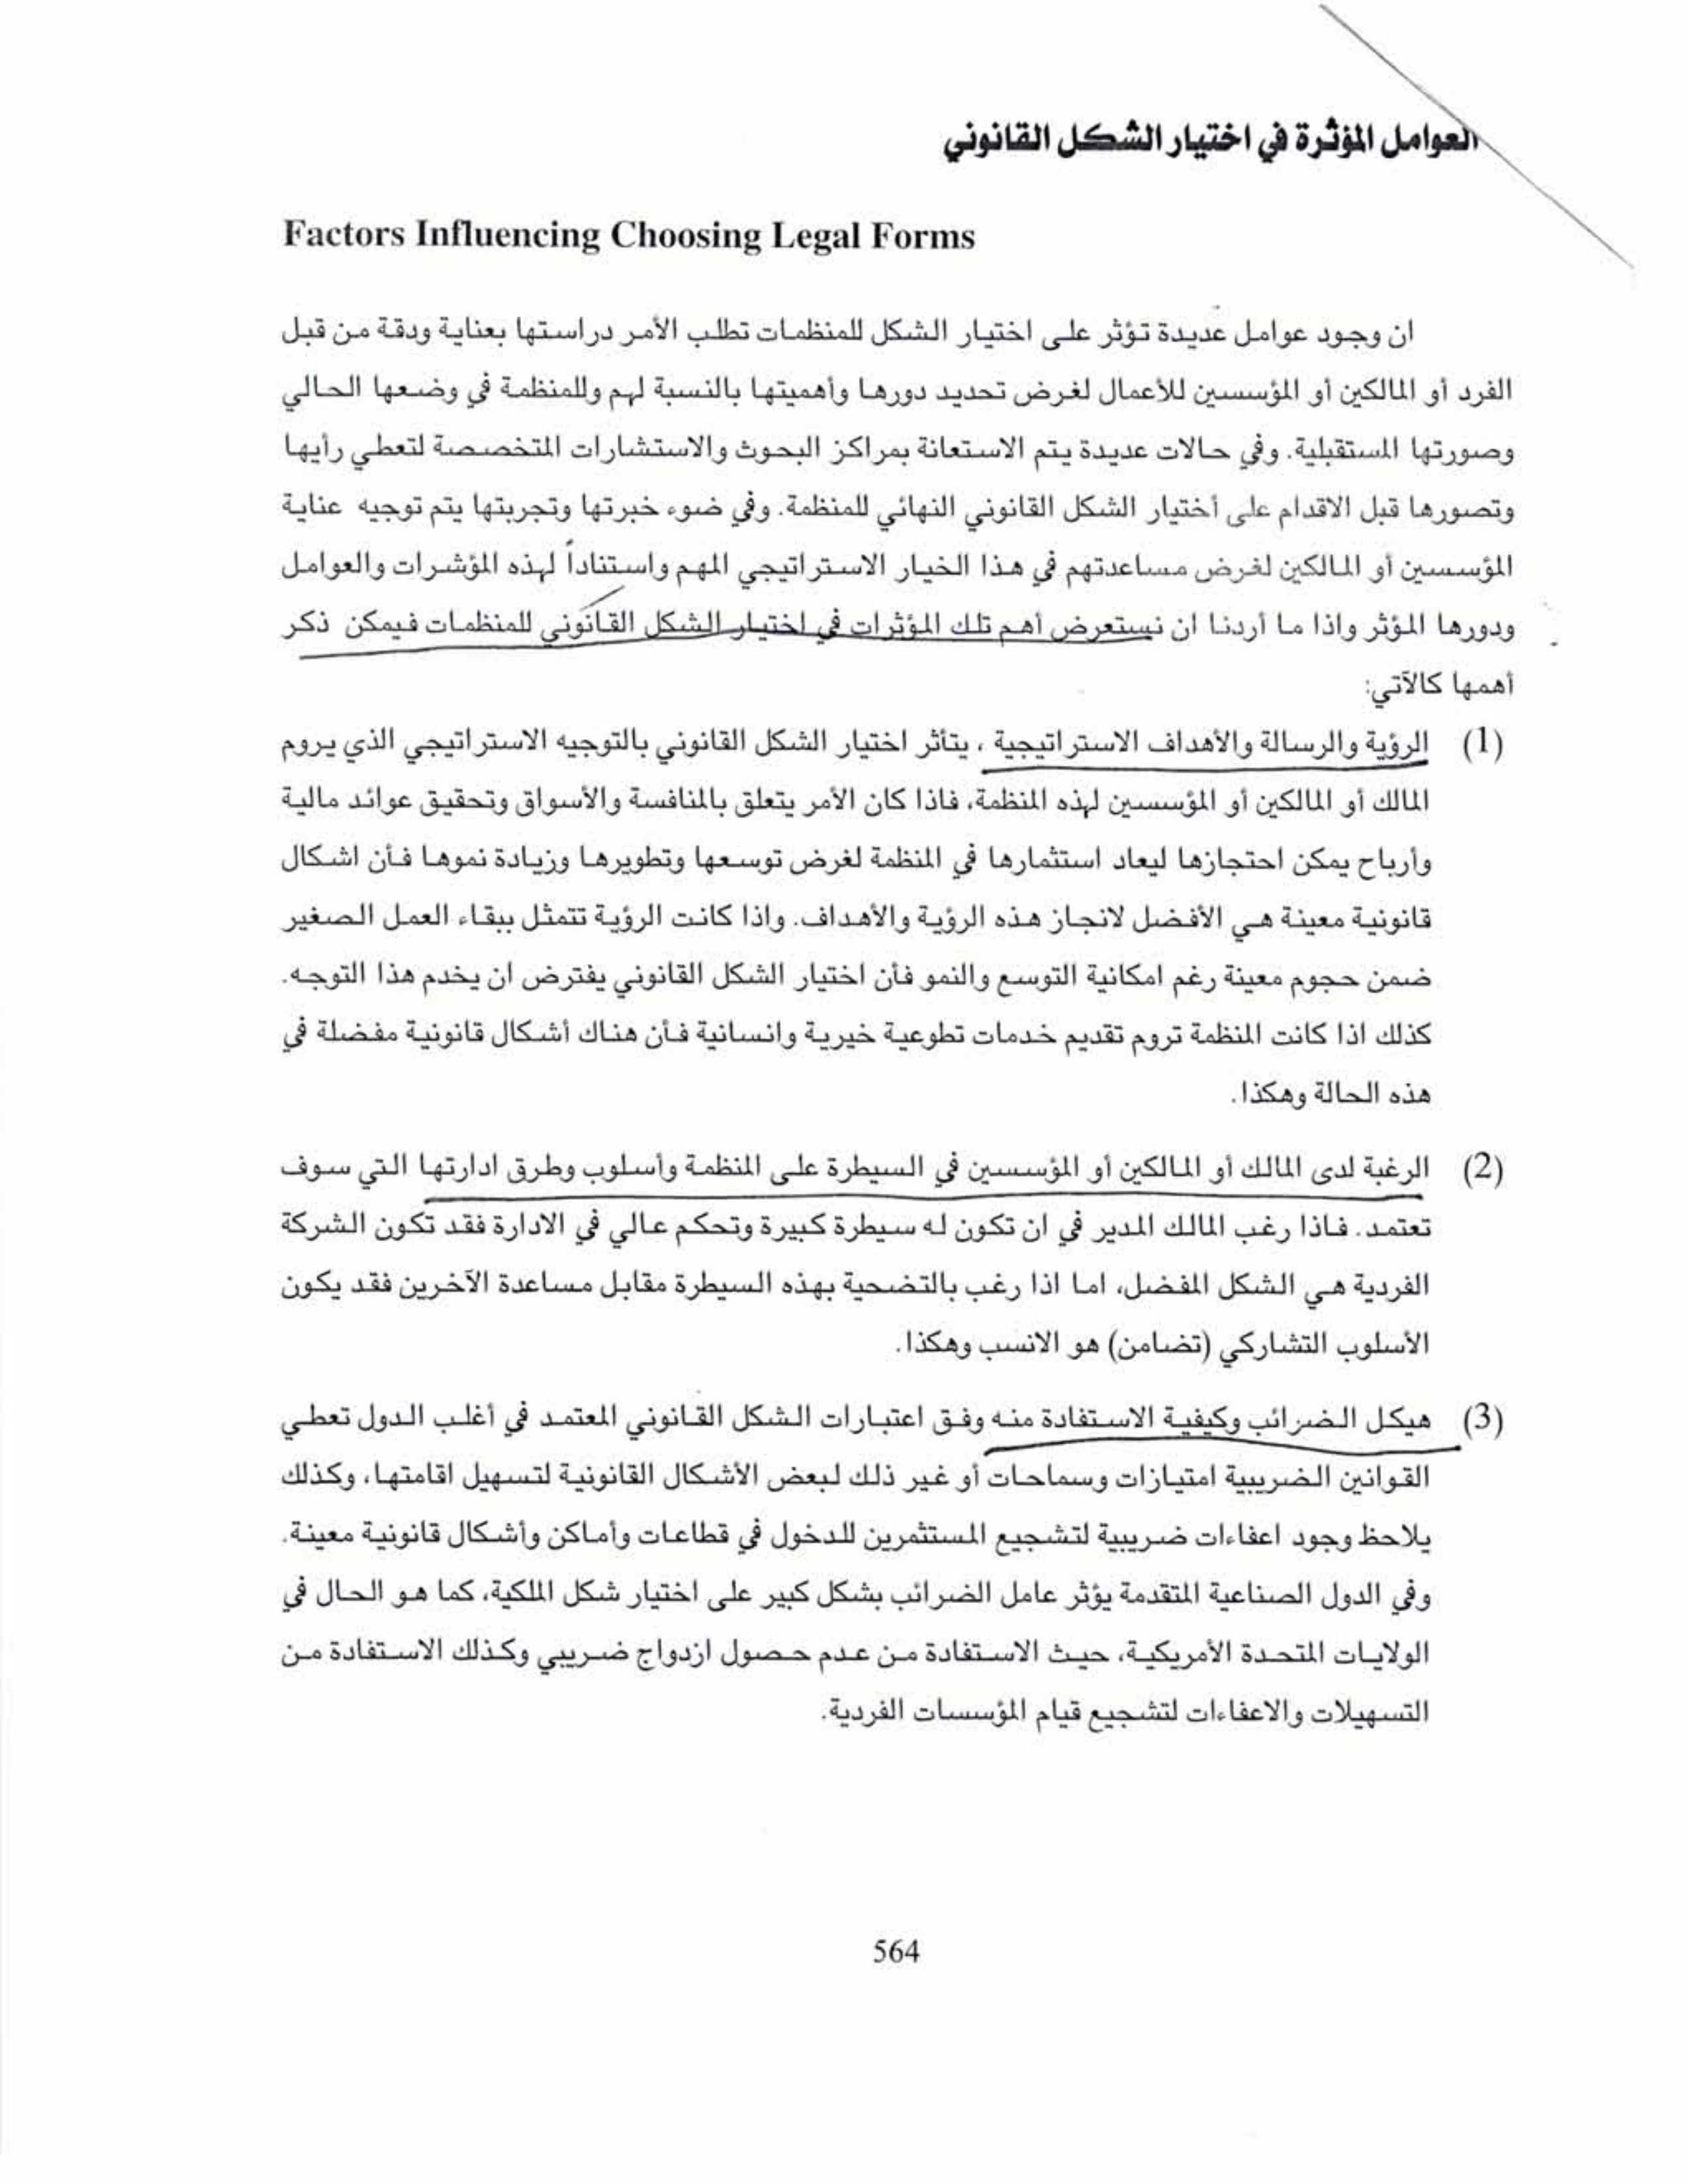 العوامل المؤثرة في اختيار الشكل القانوني
Factors Influencing Choosing Legal Forms
ان وجود عوامل عديدة تؤثر على اختيار الشكل للمنظمات تطلب الأمر دراستها بعناية ودقة من قبل
الفرد أو المالكين أو المؤسسين للأعمال لغرض تحديد دورها وأهميتها بالنسبة لهم وللمنظمة في وضعها الحالي
وصورتها المستقبلية. وفي حالات عديدة يتم الاستعانة بمراكز البحوث والاستشارات المتخصصة لتعطي رأيها
وتصورها قبل الاقدام على أختيار الشكل القانوني النهائي للمنظمة. وفي ضوء خبرتها وتجربتها يتم توجيه عناية
المؤسسين أو المالكين لغرض مساعدتهم في هذا الخيار الاستراتيجي المهم واستناداً لهذه المؤشرات والعوامل
ودورها المؤثر واذا ما أردنا ان نستعرض أهم تلك المؤثرات في اختيار الشكل القانوني للمنظمات فيمكن ذكر
أهمها كالآتي:
(1) الرؤية والرسالة والأهداف الاستراتيجية ، يتأثر اختيار الشكل القانوني بالتوجيه الاستراتيجي الذي يروم
المالك أو المالكين أو المؤسسين لهذه المنظمة، فاذا كان الأمر يتعلق بالمنافسة والأسواق وتحقيق عوائد مالية
وأرباح يمكن احتجازها ليعاد استثمارها في المنظمة لغرض توسعها وتطويرها وزيادة نموها فأن اشكال
قانونية معينة هي الأفضل لانجاز هذه الرؤية والأهداف. واذا كانت الرؤية تتمثل ببقاء العمل الصغير
ضمن حجوم معينة رغم امكانية التوسع والنمو فأن اختيار الشكل القانوني يفترض ان يخدم هذا التوجه.
كذلك اذا كانت المنظمة تروم تقديم خدمات تطوعية خيرية وانسانية فأن هناك أشكال قانونية مفضلة في
هذه الحالة وهكذا.
(2) الرغبة لدى المالك أو المالكين أو المؤسسين في السيطرة على المنظمة وأسلوب وطرق ادارتها التي سوف
تعتمد. فاذا رغب المالك المدير في ان تكون له سيطرة كبيرة وتحكم عالي في الادارة فقد تكون الشركة
الفردية هي الشكل المفضل، اما اذا رغب بالتضحية بهذه السيطرة مقابل مساعدة الآخرين فقد يكون
الأسلوب التشاركي (تضامن) هو الانسب وهكذا.
(3) هيكل الضرائب وكيفية الاستفادة منه وفق اعتبارات الشكل القانوني المعتمد في أغلب الدول تعطي
القوانين الضريبية امتيازات وسماحات أو غير ذلك لبعض الأشكال القانونية لتسهيل اقامتها، وكذلك
يلاحظ وجود اعفاءات ضريبية لتشجيع المستثمرين للدخول في قطاعات وأماكن وأشكال قانونية معينة.
وفي الدول الصناعية المتقدمة يؤثر عامل الضرائب بشكل كبير على اختيار شكل الملكية، كما هو الحال في
الولايات المتحدة الأمريكية، حيث الاستفادة من عدم حصول ازدواج ضريبي وكذلك الاستفادة من
التسهيلات والاعفاءات لتشجيع قيام المؤسسات الفردية.
564